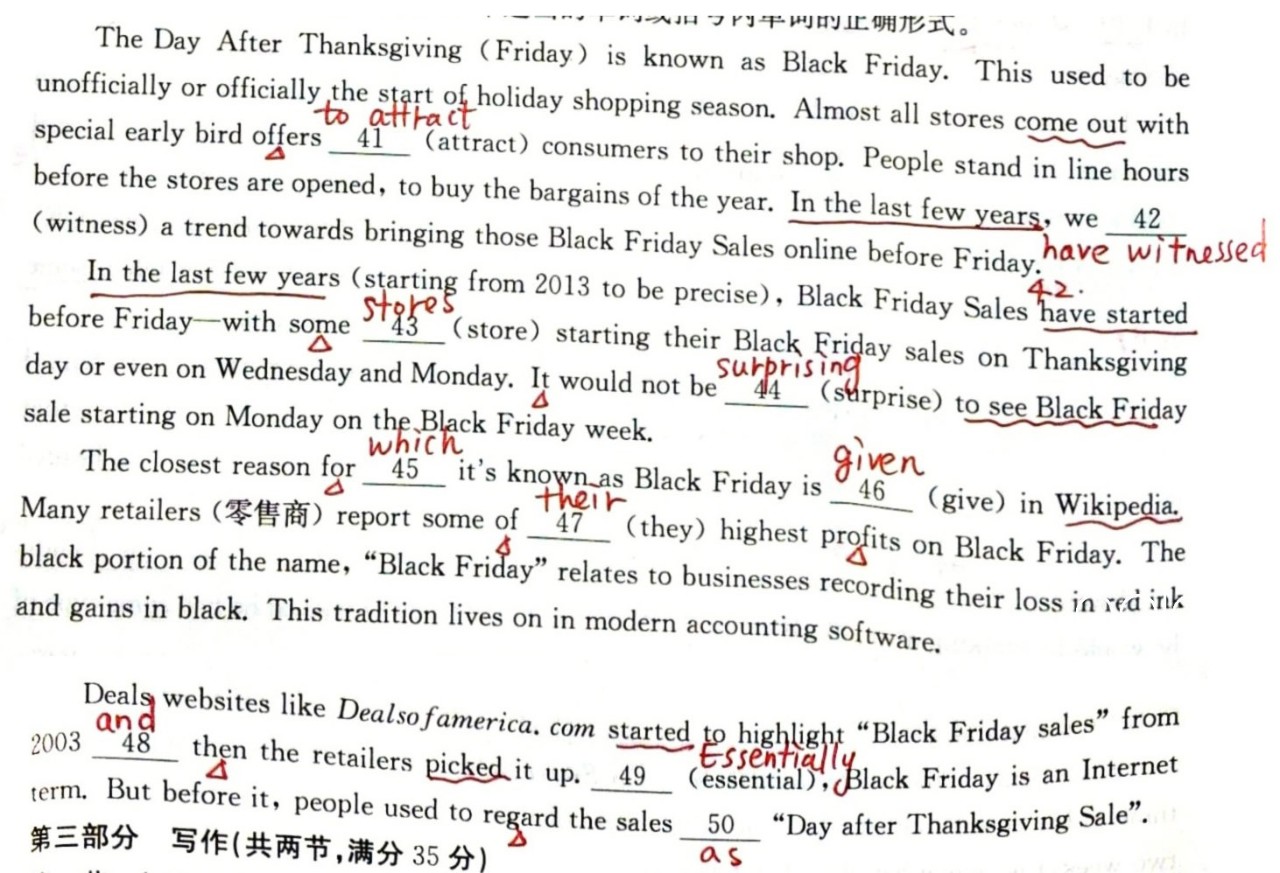 The Day After Thanksgiving (Friday) is known as Black Friday. This used to be
unofficially or officially the start of holiday shopping season. Almost all stores come out with
to attract
special early bird offers 41 (attract) consumers to their shop. People stand in line hours
before the stores are opened, to buy the bargains of the year. In the last few years, we 42
(witness) a trend towards bringing those Black Friday Sales online before Friday.
have witnessed
42.
In the last few years (starting from 2013 to be precise), Black Friday Sales have started
stores
before Friday—with some 43 (store) starting their Black Friday sales on Thanksgiving
surprising
day or even on Wednesday and Monday. It would not be 44 (surprise) to see Black Friday
sale starting on Monday on the Black Friday week.
which
given
The closest reason for 45 it's known as Black Friday is 46 (give) in Wikipedia.
their
Many retailers (零售商) report some of 47 (they) highest profits on Black Friday. The
black portion of the name, “Black Friday” relates to businesses recording their loss in red ink
and gains in black. This tradition lives on in modern accounting software.
Deals websites like Dealsofamerica. com started to highlight “Black Friday sales” from
and
2003 48 then the retailers picked it up. 49 (essential), Black Friday is an Internet
Essentially
term. But before it, people used to regard the sales 50 “Day after Thanksgiving Sale”.
as
第三部分 写作(共两节,满分 35 分)